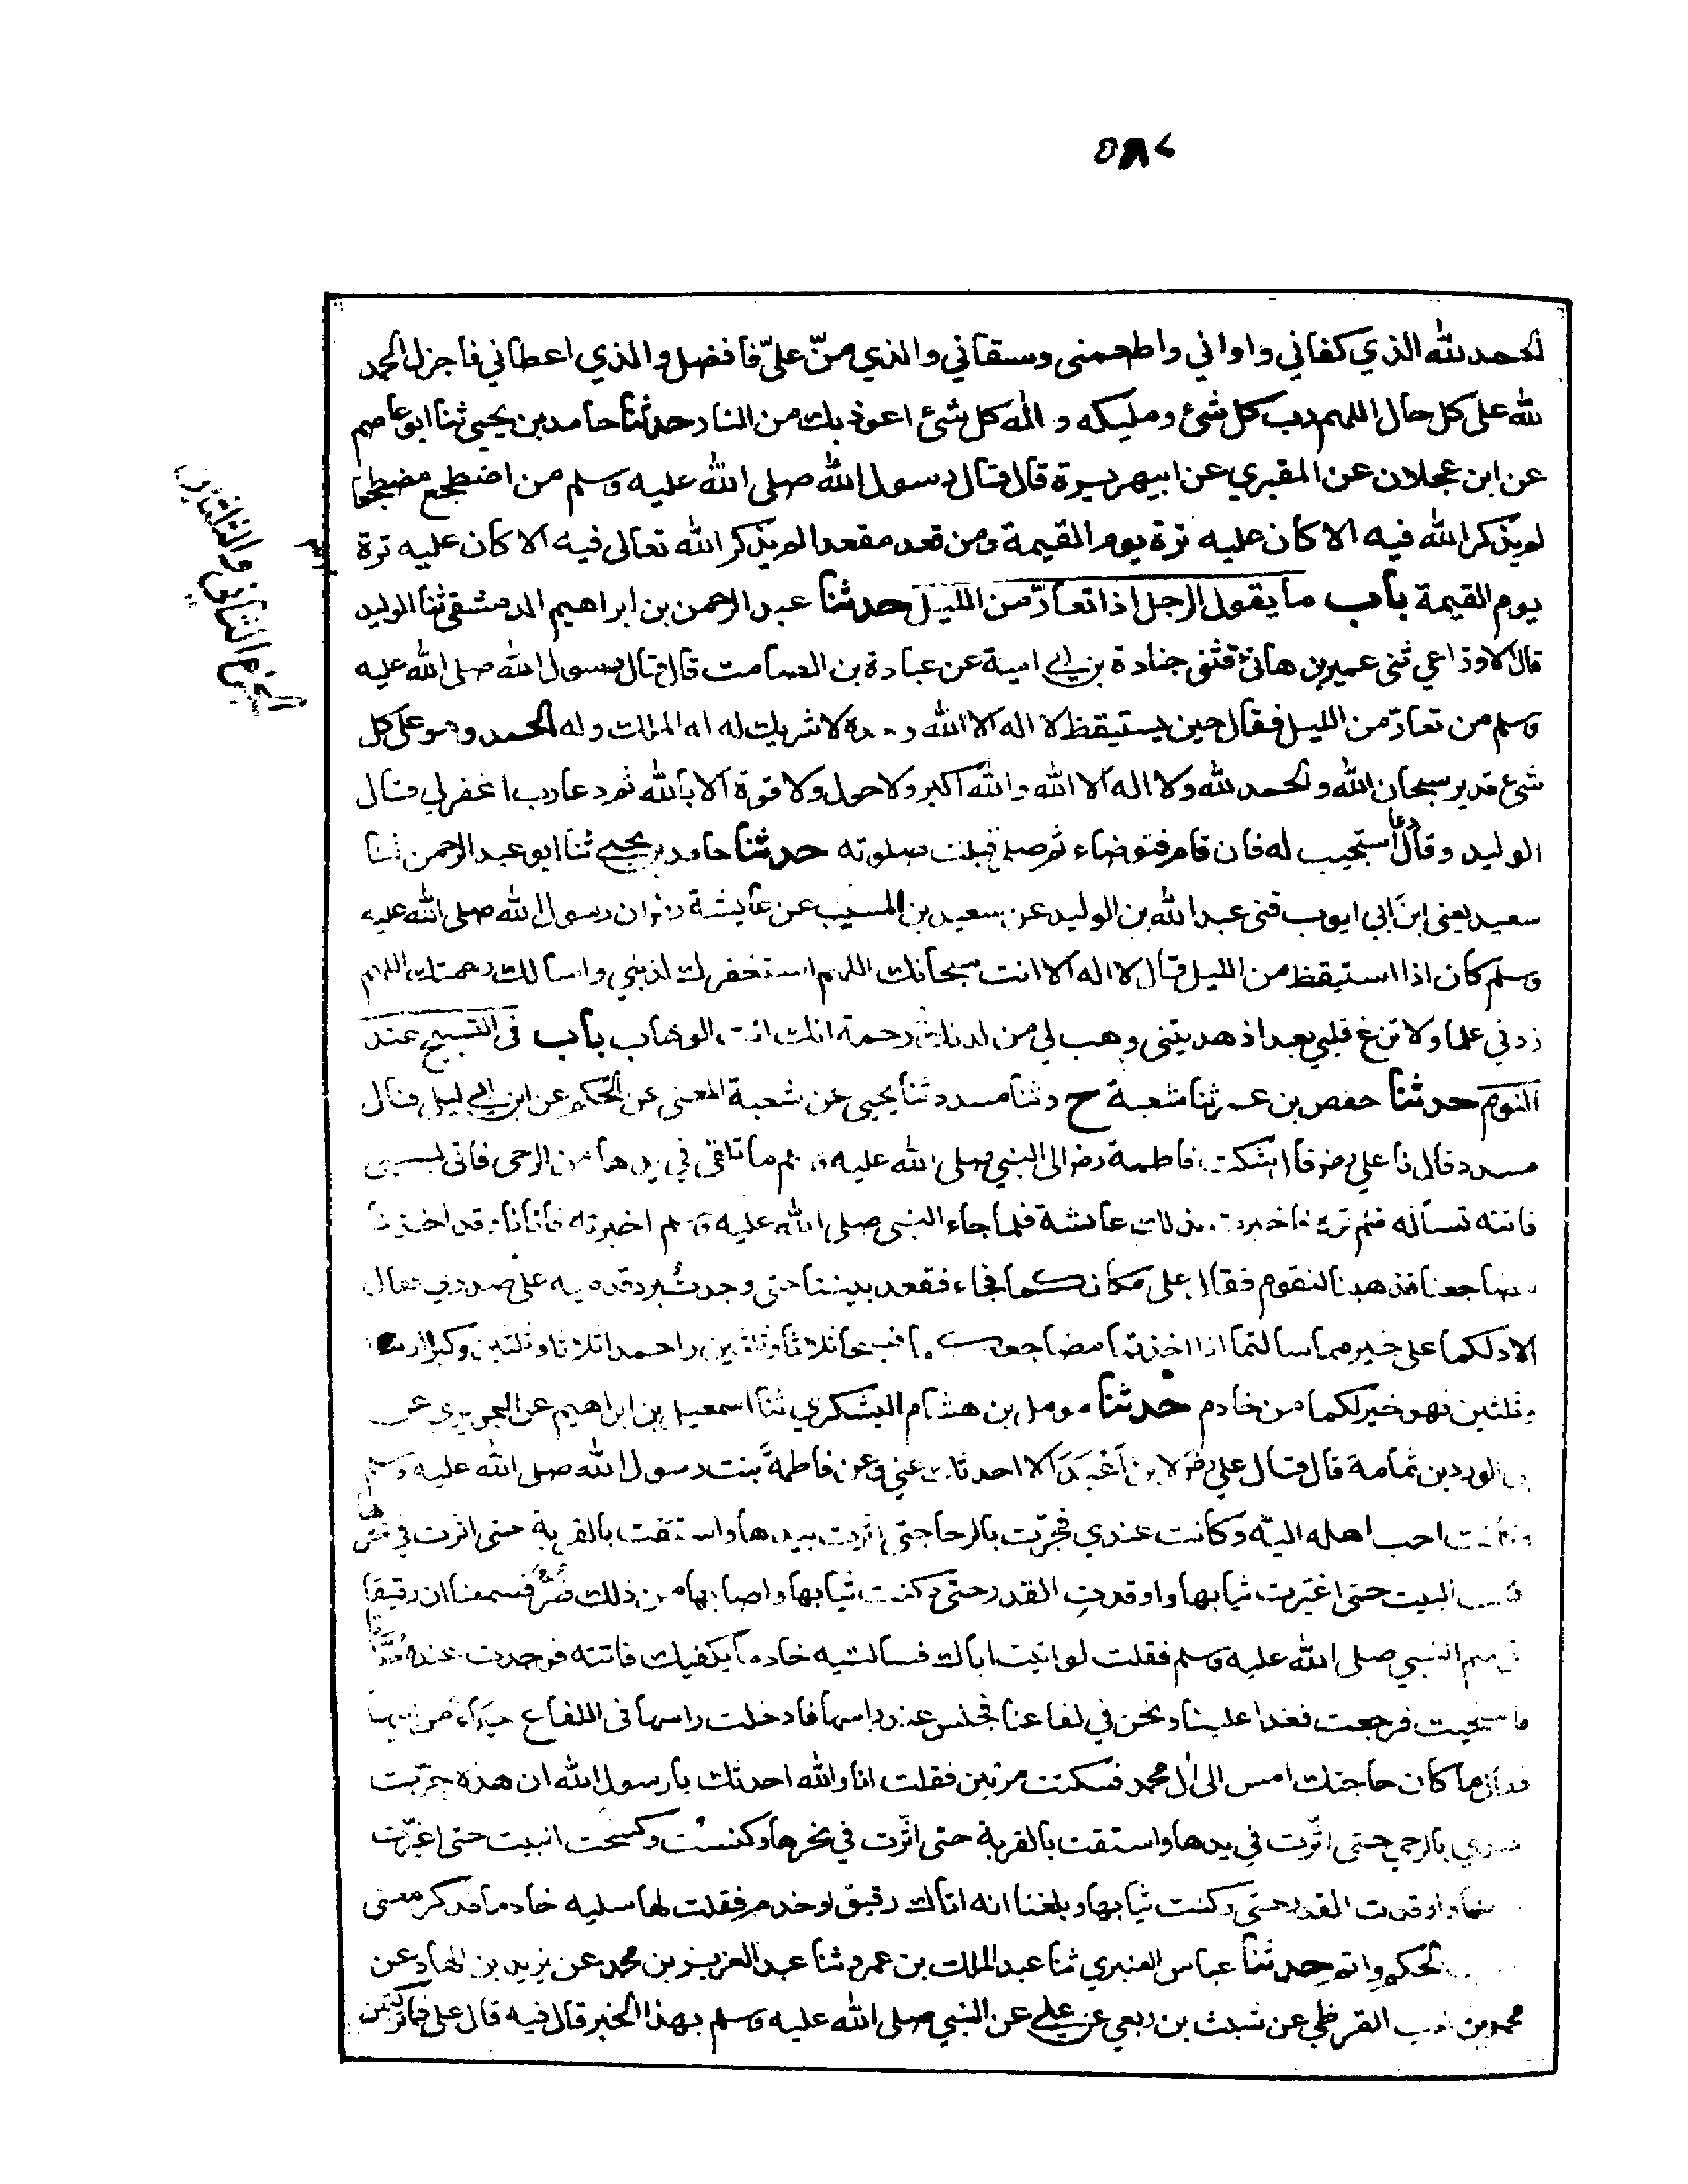 ٥٨٢
الحمد لله الذي كفاني واواني واطعمني وسقاني والذي منّ عليّ فافضل والذي اعطاني فاجزل الحمد
لله على كل حال اللهم رب كل شئ ومليكه و اله كل شئ اعوذ بك من النار حدثنا حامد بن يحيى ثنا ابو عاصم
عن ابن عجلان عن المقبري عن ابيهريرة قال قال رسول الله صلى الله عليه وسلم من اضطجع مضطجعا
لم يذكر الله فيه الا كان عليه ترة يوم القيمة ومن قعد مقعدا لم يذكر الله تعالى فيه الا كان عليه ترة
يوم القيمة باب ما يقول الرجل اذا تعارّ من الليل حدثنا عبد الرحمن بن ابراهيم الدمشقي ثنا الوليد
قال الاوزاعي ثنى عمير بن هانئ فثنى جنادة بن ابي امية عن عبادة بن الصامت قال قال رسول الله صلى الله عليه
وسلم من تعارّ من الليل فقال حين يستيقظ لا اله الا الله وحده لا شريك له له الملك وله الحمد وهو على كل
شئ قدير سبحان الله والحمد لله ولا اله الا الله والله اكبر ولا حول ولا قوة الا بالله ثم دعا رب اغفر لي قال
الوليد وقال دعا استجيب له فان قام فتوضاء ثم صلى قبلت صلوته حدثنا حامد بن يحيى ثنا ابو عبد الرحمن ثنا
سعيد يعني ابن ابي ايوب فنى عبد الله بن الوليد عن سعيد بن المسيب عن عايشة رض ان رسول الله صلى الله عليه
وسلم كان اذا استيقظ من الليل قال لا اله الا انت سبحانك اللهم استغفرك لذنبي واسالك رحمتك اللهم
زدني علما ولا تزغ قلبي بعد اذ هديتني وهب لي من لدنك رحمة انك انت الوهاب باب في التسبيح عند
النوم حدثنا حفص بن عمر ثنا شعبة ح وثنا مسدد ثنا يحيى عن شعبة المعنى عن الحكم عن ابن ابي ليلى قال
مسدد قال نا علي رض قال شكت فاطمة رض الى النبي صلى الله عليه وسلم ما تلقى في يدها من الرحى فاتى بسبي
فاتته تسأله فلم تره فاخبرت بذلك عائشة فلما جاء النبي صلى الله عليه وسلم اخبرته فاتانا وقد اخذنا
مضاجعنا فذهبنا لنقوم فقال على مكانكما فجاء فقعد بيننا حتى وجدت برد قدميه على صدري فقال
الا ادلكما على خير مما سالتما اذا اخذتما مضاجعكما فسبحا ثلاثا وثلثين واحمدا ثلاثا وثلثين وكبرا اربعا
وثلثين فهو خير لكما من خادم حدثنا مومل بن هشام اليشكري ثنا اسمعيل بن ابراهيم عن الجريري عن
ابي الورد بن ثمامة قال قال علي رض لابن اعبد الا احدثك عني وعن فاطمة بنت رسول الله صلى الله عليه وسلم
وكانت احب اهله اليه وكانت عندي فجرّت بالرحا حتى اثرت بيدها واستقت بالقربة حتى اثرت في نحرها
وقمت البيت حتى اغبرت ثيابها واوقدت القدر حتى دكنت ثيابها واصابها من ذلك ضرّ فسمعنا ان رقيقا
النبي صلى الله عليه وسلم فقلت لو اتيت اباك فسالتيه خادما يكفيك فاتته فوجدت عنده حدّاثا
فاستحيت فرجعت فغدا علينا ونحن في لفاعنا فجلس عند راسها فادخلت راسها في اللفاع حياء من ابيها
فقال ما كان حاجتك امس الى ال محمد فسكتت مرتين فقلت انا والله احدثك يا رسول الله ان هذه جرّت
عندي بالرحى حتى اثّرت في يدها واستقت بالقربة حتى اثّرت في نحرها وكنست وكسحت البيت حتى اغبرّت
ثيابها واوقدت القدر حتى دكنت ثيابها وبلغنا انه اتاك رقيق او خدم فقلت لها سليه خادما فذكر معنى
الحكم واتم حدثنا عباس العنبري ثنا عبد الملك بن عمرو ثنا عبد العزيز بن محمد عن يزيد بن الهاد عن
محمد بن كعب القرظي عن شبث بن ربعي عن علي عن النبي صلى الله عليه وسلم بهذا الخبر قال فيه قال علي فما تركتهن